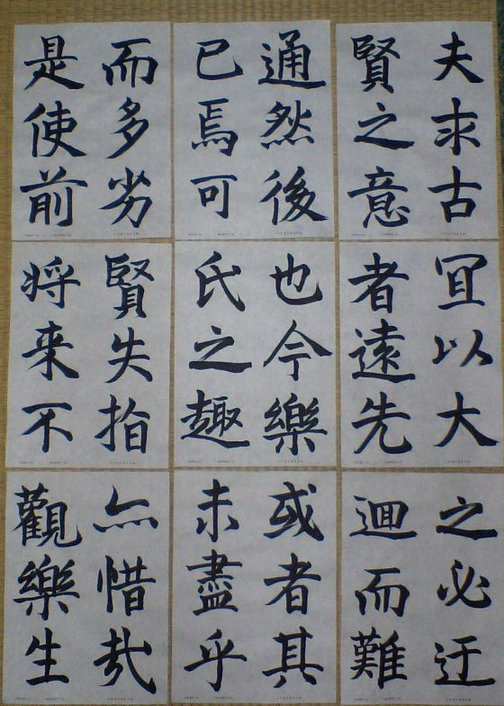 夫求古
賢之意
冝以大
者遠先
之必迂
迴而難
通然後
已焉可
也今樂
氏之趣
或者其
未盡乎
而多劣
是使前
賢失指
将来不
亦惜哉
觀樂生